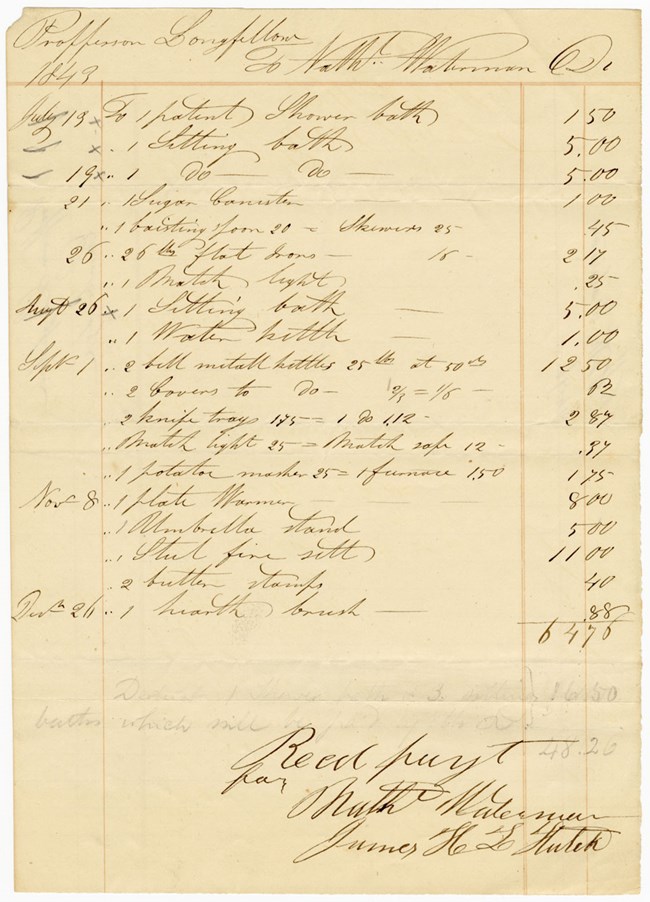 Profferson Longfellow
1843 To Nathl. Waterman Dr
July 19 x To 1 patent Shower bath 1 50
" x " 1 Sitting bath 5.00
" 19 x " 1 do — do — 5.00
21 " 1 Sugar Canister 1 00
" 1 baisting spoon 20 = Skewers 25 .45
26 " 26 lbs flat Irons — 1/6 - 2 17
" 1 Match light .25
Augt 26 x " 1 Sitting bath — 5.00
" 1 Water kettle — 1.00
Sept 1 " 2 bell metall kettles 25 lbs at 50 cts 12 50
" 2 Covers to do - 2/3 = 1/6 - 62
" 2 knife trays 175 = 1 do 1.12 - 2 87
" Match light 25 = Match safe 12 - .37
" 1 potatoe masher 25 = 1 furnace 1.50 1 75
Nov 8 " 1 plate Warmer — 8 00
" 1 Umbrella stand 5 00
" 1 Steel fire sett 11 00
" 2 butter stamps 40
Decm 26 " 1 hearth brush — .88
64 76
Deduct 1 Shower bath & 3 sitting 16.50
baths which will be paid by
48.26
Recd payt
for Nathl Waterman
James H L